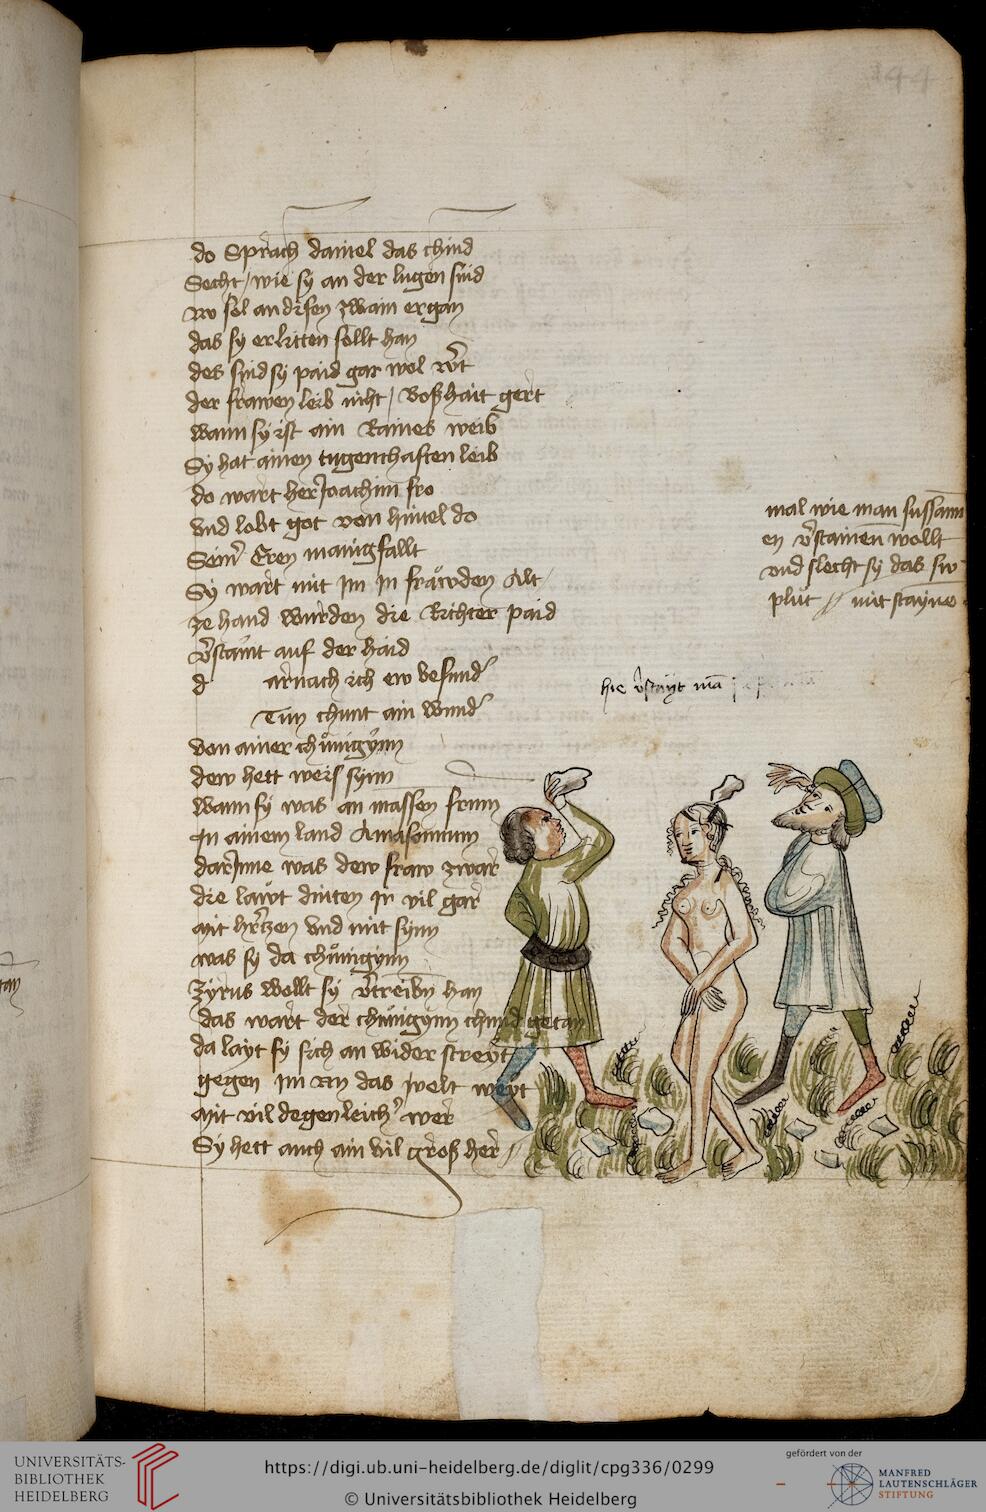 144
do Sprach daniel das chind
Secht / wie sy an der lugen sind
Nv sol an disen zwain ergan
das sy erlitten sollt han
des sind sy paid gar wol w̄t
der frawen leib nicht / Boßhait gert
wann sy ist ain Raines weib
Sy hat ainen tugenthaften leib
do wart her Joachim fro
vnd lobt got von himel do
Seinr̄ Eren manigfallt
Sy wart mit Im In fräwden Alt
ze hand wurden die Richter paid
v̄staint auf der haid
d arnach ich ew besundr̄
Tun chunt ain wundr̄
von ainer chünigynn
dew hett weis synn
wann sy was an massen frum
In ainem land Amasonnum
darJnne was dew fraw zwar
die läwt dinten Jr vil gar
mit hertzen vnd mit synn
was sy da chünigynn
Zyrus wollt sy v̄treibn han
das wart der chünigynn chund getan
da layt sy sich an wider streyt
gegen im an das velt weyt
mit vil degenleichr̄ wer
Sy hett auch ain vil groß her
mal wie man sussann
en v̄stainen wollt
vnd slecht sy das sw
plüt mit stayne
hie v̄stayt mā
UNIVERSITÄTS-
BIBLIOTHEK
HEIDELBERG
https://digi.ub.uni-heidelberg.de/diglit/cpg336/0299
© Universitätsbibliothek Heidelberg
gefördert von der
MANFRED
LAUTENSCHLÄGER
STIFTUNG